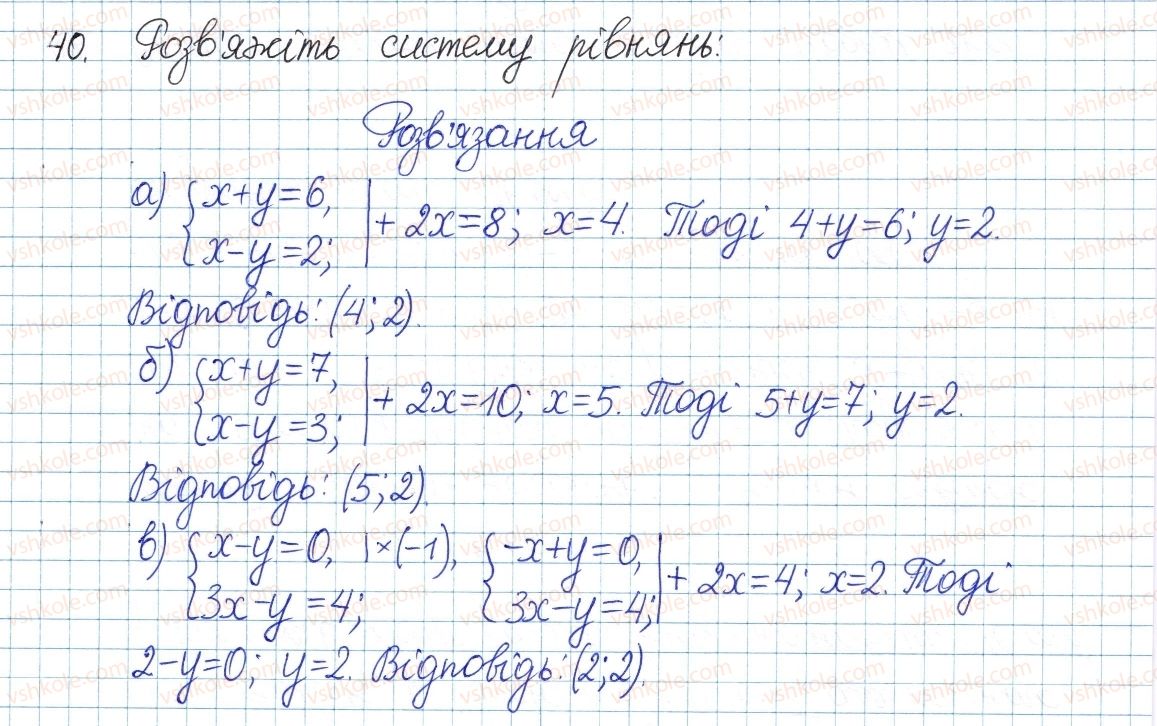 40. Розв'яжіть систему рівнянь:
Розв'язання
а) { x+y=6, x-y=2; | + 2x=8; x=4. Тоді 4+y=6; y=2.
Відповідь: (4; 2).
б) { x+y=7, x-y=3; | + 2x=10; x=5. Тоді 5+y=7; y=2.
Відповідь: (5; 2).
в) { x-y=0, |×(-1), 3x-y=4; { -x+y=0, 3x-y=4; | + 2x=4; x=2. Тоді
2-y=0; y=2. Відповідь: (2; 2).
vshkole.com